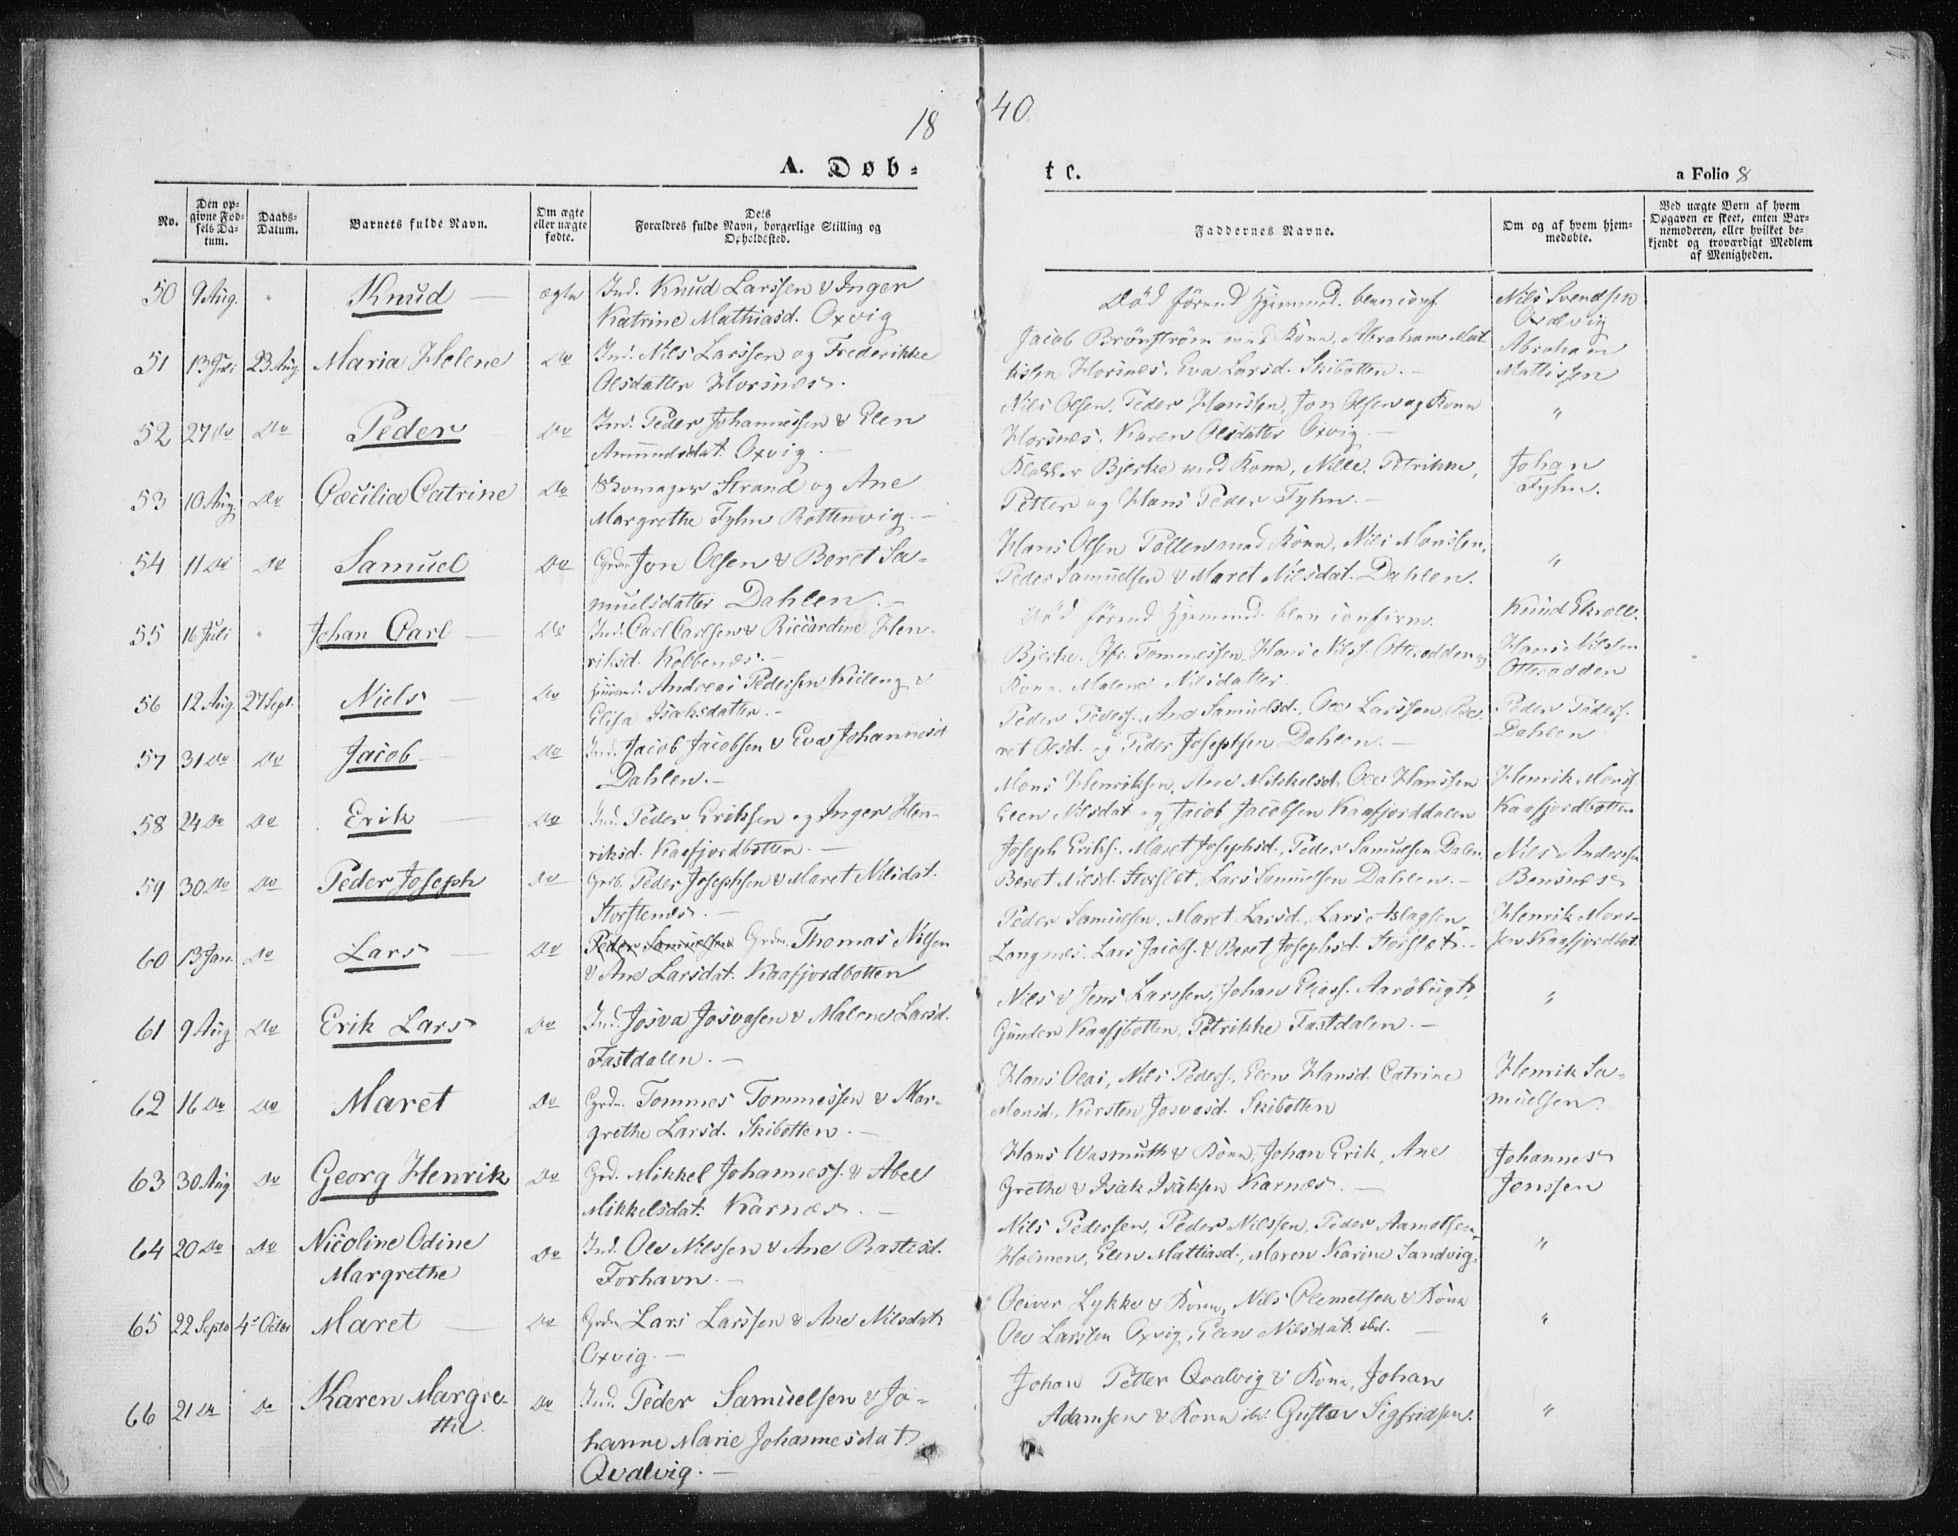 18
40
A. Døb-
te.
a Folio 8
No.
Den op-
givne Fød-
sels Da-
tum.
Daabs-
Datum.
Barnets fulde Navn.
Om ægte
eller uægte
fødte.
Dets
Forældres fulde Navn, borgerlige Stilling og
Opholdssted.
Faddernes Navne.
Om og af hvem hjem-
medøbte.
Ved uægte Børn af hvem
Opgaven er skeet, enten Bar-
nemoderen, eller hvilket be-
kjendt og troværdigt Medlem
af Menigheden.
50 9 Aug. " Knud ægte Ind. Knud Larssen & Inger
Katrine Mathiasd. Oxvig
Død førend Hjemmed. blev conf
Nils Svendsen
Oxvig
51 13 Juli 23 Aug. Maria Helene Do Ind. Nils Larssen og Frederikke
Olsdatter Horsnes.
Jacob Brönström med Kone, Abraham Mat
tissen Horsnes, Eva Larsd. Skibotten.
Abraham
Mattissen
52 27 Do Do Peder Do Ind. Peder Johannessen & Elen
Amundsdat. Oxvig
Nils Olsen, Peder Hanssen, Jon Olsen og Kone
Horsnes, Karen Olsdatter Oxvig
"
53 10 Aug. Do Cæcilia Catrine Do Strand og Ane
Margrethe Fyhn Rottenvig.
Klokker Bjerke med Kone, Nille, Petrikke,
Petter og Hans Peder Fyhn.
Johan
Fyhn.
54 11 Do Do Samuel Do Grdm. Jon Olsen & Beret Sa-
muelsdatter Dahlen.
Hans Olsen Pollen med Kone, Nils Monsen,
Peder Samuelsen & Maret Nilsdat. Dahlen.
"
55 16 Juli " Johan Carl Do Ind. Carl Carlsen & Riccardine Hen-
riksd. Kolbenæs.
Død førend Hjemmed. blev confirm.
Knud Ekroll.
56 12 Aug. 27 Sept. Niels Do Andreas Pedersen Kileng &
Elisa Isaksdatter.
Bjerke, Tommessen, Hans Nilss. Otterodden og
Kone, Malene Nilsdatter
Hans Nilssen
Otterodden
57 31 Do Do Jacob Do Ind. Jacob Jacobsen & Eva Johannesd
Dahlen.
Peder Pederss. Ane Samuelsd., Ole Larssen, Be-
ret Olsd. og Peder Josephsen Dahlen.
Peder Pederss.
Dahlen
58 24 Do Do Erik Do Ind. Peder Eriksen og Inger Hen-
riksd. Kaafjordbotten.
Mons Henriksen, Ane Mikkelsd. Ole Hanssen
Elen Nilsdat. og Jacob Jacobsen Kaafjorddalen
Henrik Monss.
Kaafjordbotten
59 30 Do Do Peder Joseph Do Grdb. Peder Josephsen & Maret Nilsdat.
Storstenæs.
Joseph Erikss. Maret Josephsd., Peder Samuelsen Dalen,
Beret Nilsd. Storslet, Lars Samuelsen Dahlen.
Nils Andersen
Bensnes
60 13 Jan. Do Lars Do Peder Samuelsen Grdm. Thomas Nilsen
& Ane Larsdat. Kaafjordbotten
Peder Samuelsen, Maret Larsd., Lars Aslagsen
Langnæs, Lars Jacobs. & Beret Josephsd. Storslet
Henrik Mons-
sen Kaafjordbot.
61 9 Aug Do Erik Lars Do Ind. Josva Josvasen & Malene Larsd.
Fastdalen.
Nils & Jens Larssen, Johan Eliass. Aarøbugt,
Gunder Kaafjbotten, Petrikke Fastdalen.
"
62 16 Do Do Maret Do Grdm. Tommes Tommessen & Mar-
grethe Larsd. Skibotten.
Hans Olai, Nils Pederss., Elen Hansd. Catrine
Monsd., Kirsten Josvasd. Skibotten
Henrik Sa-
muelsen.
63 30 Aug Do Georg Henrik Do Grd. Mikkel Johanness. & Abel
Mikkelsdat. Karnæs.
Hans Wasmuth & Kone, Johan Erik, Ane
Grethe & Isak Isaksen Karnæs.
Johannes
Jenssen
64 20 Do Do Nicoline Odine
Margrethe
Do Ind. Ole Nilssen & Ane Rastisd.
Forhavn.
Nils Pedersen, Peder Nilssen, Peder Aamotsen
Holmen, Elen Mattiasd., Maren Karine Sandvig.
"
65 22 Septr 4 Octbr Maret Do Grdm Lars Larssen & Ane Nilsdat
Oxvig.
Oliver Lykke & Kone, Nils Clemetsen & Kone
Ole Larssen Oxvig, Elen Nilsdat. ibd.
"
66 21 Do Do Karen Margre-
the.
Do Ind. Peder Samuelsen & Jo-
hanne Marie Johannesdat
Qvalvig.
Johan Petter Qvalvig & Kone, Johan
Adamsen & Kone ibd. Gustav Sigfridsen.
"